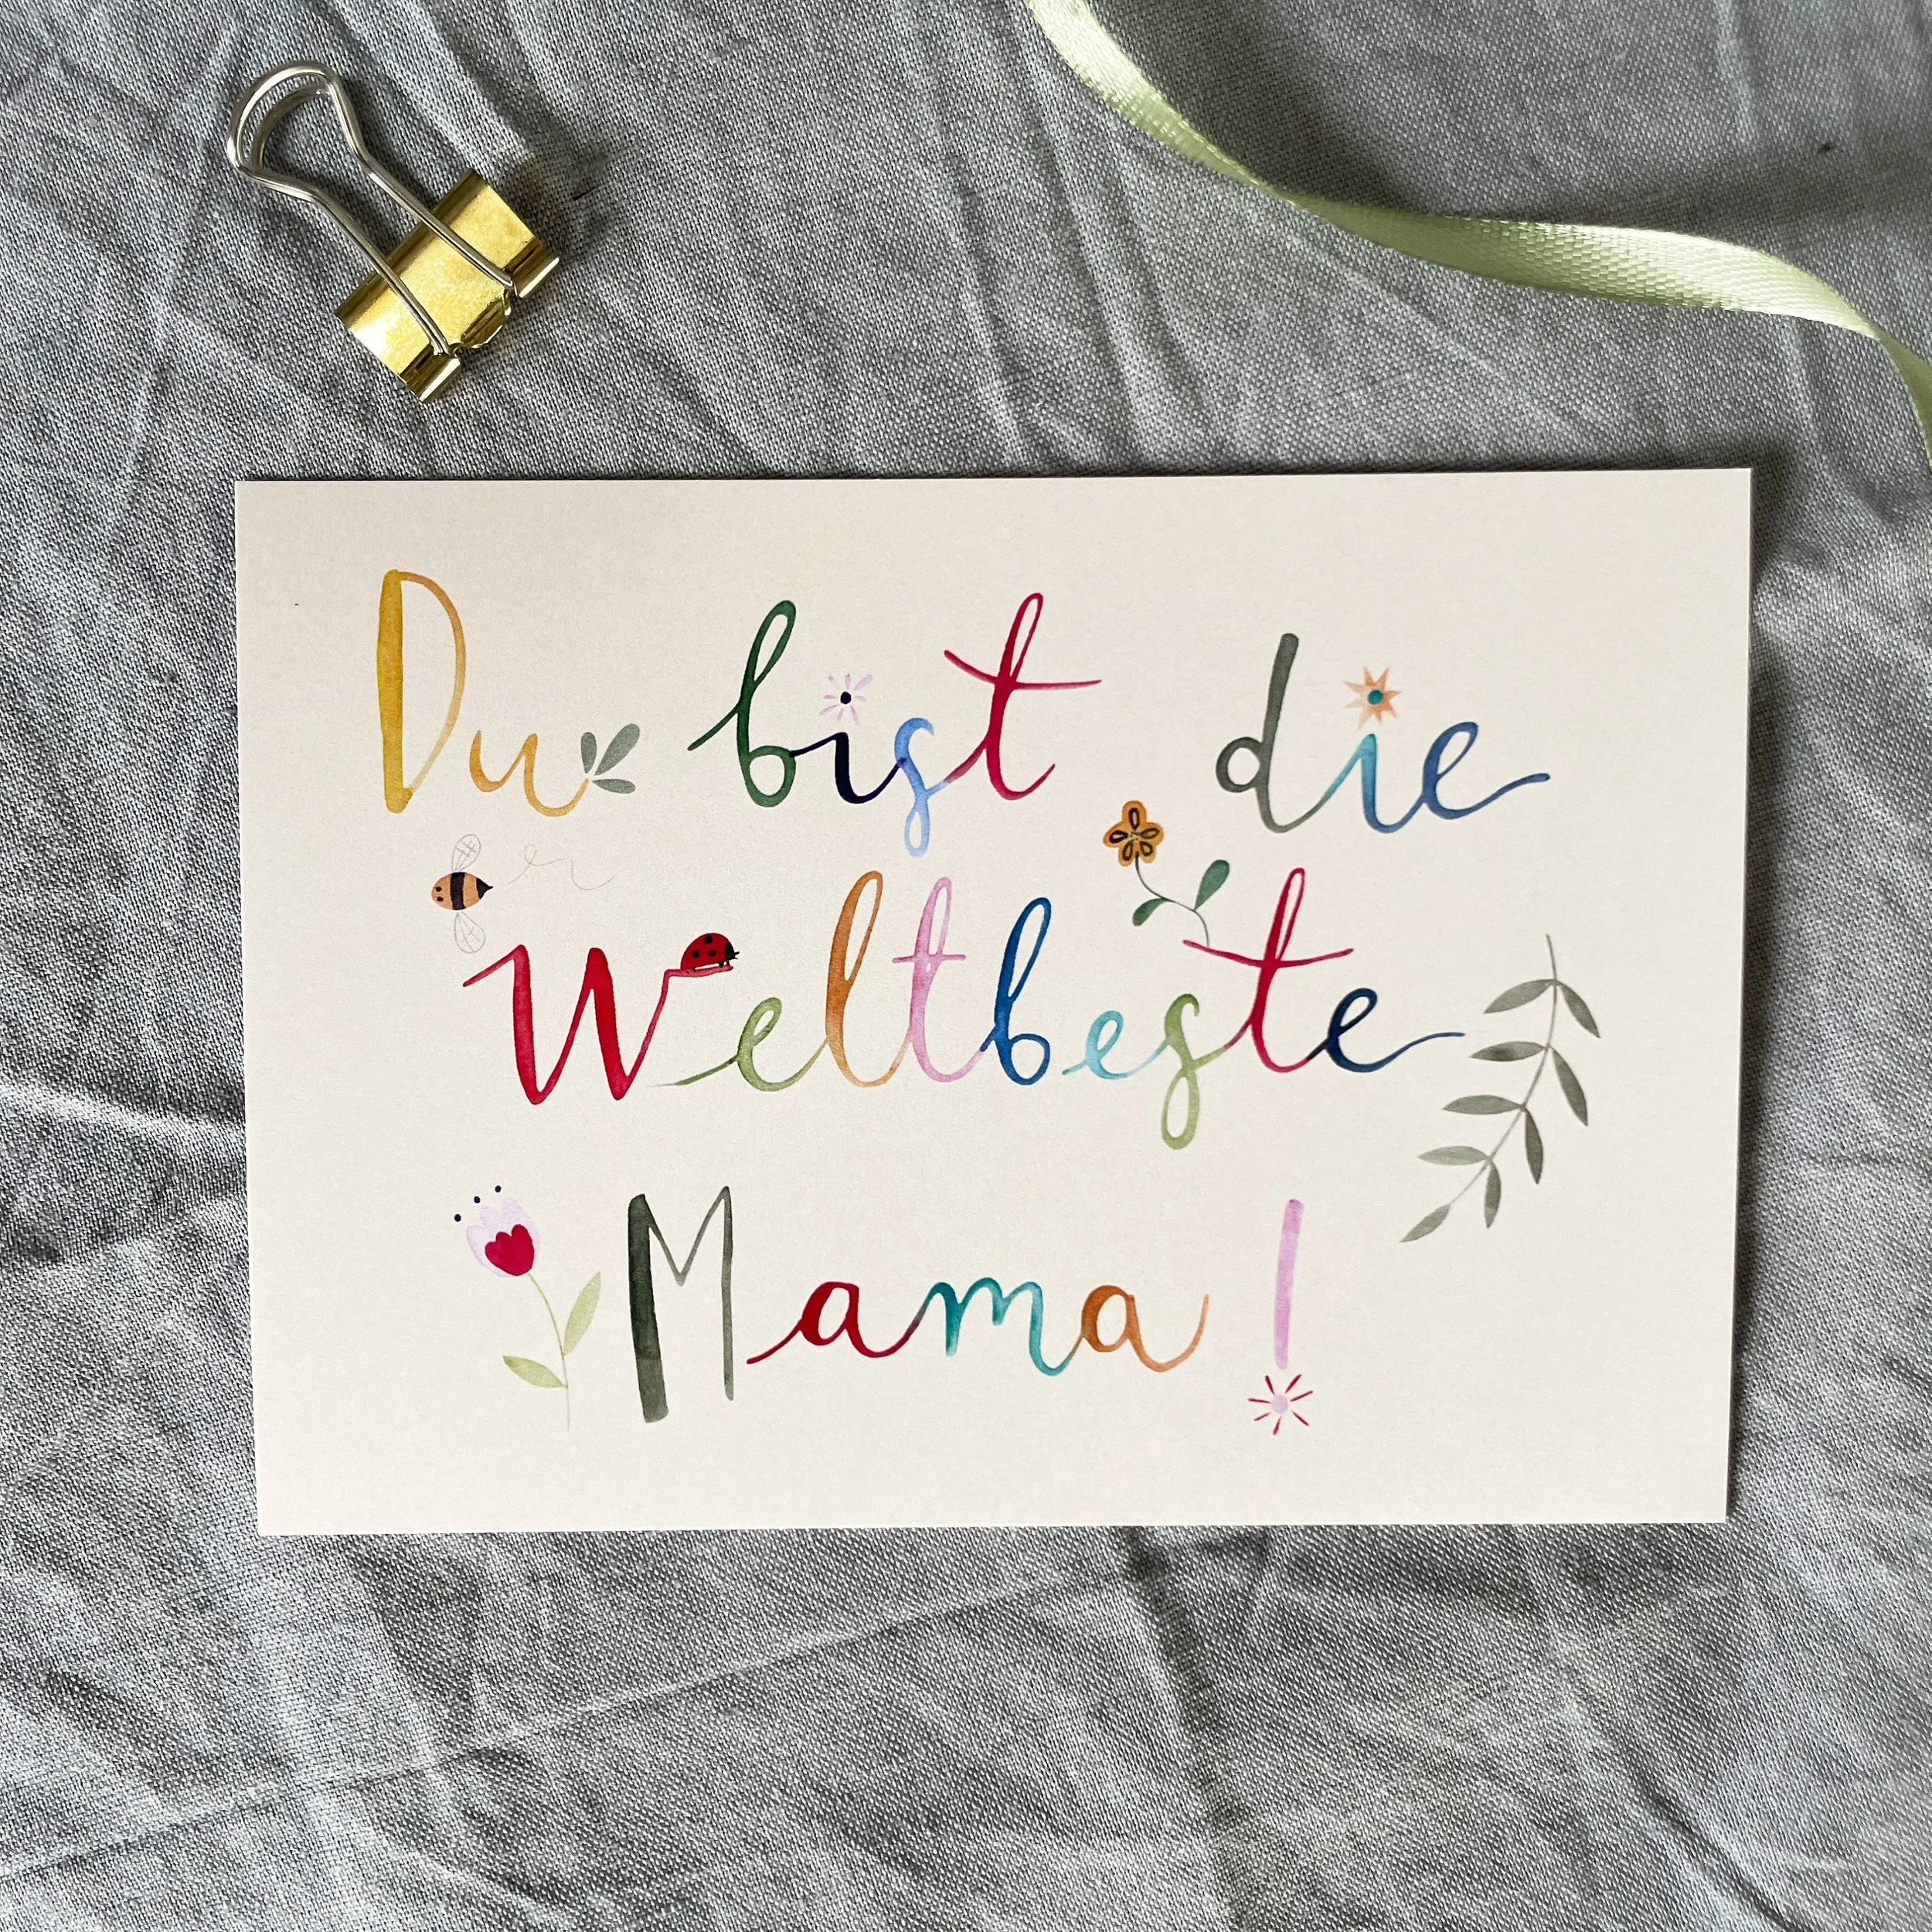 Du bist die
Weltbeste
Mama!